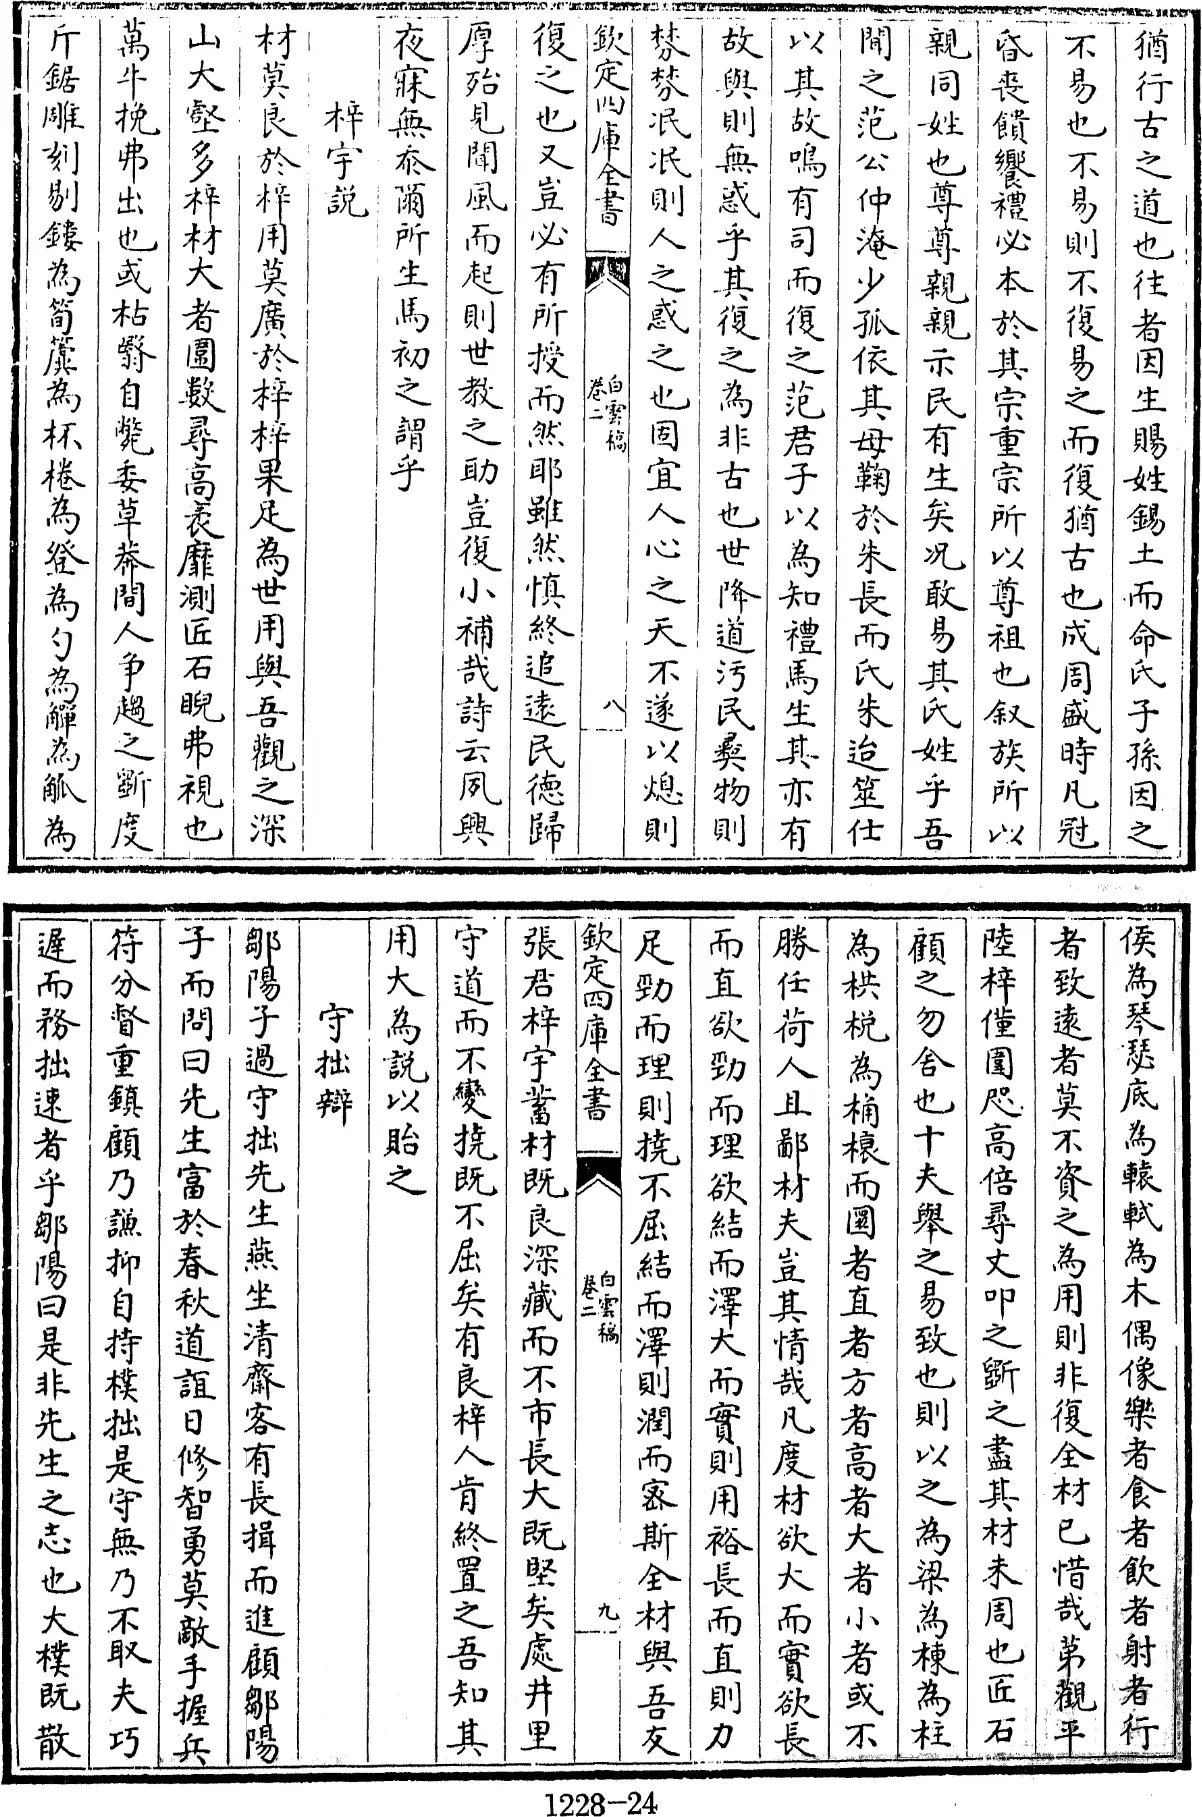 猶行古之道也往者因生賜姓錫土而命氏子孫因之
不易也不易則不復易之而復猶古也成周盛時凡冠
昏喪饋饗禮必本於其宗重宗所以尊祖也叙族所以
親同姓也尊尊親親示民有生矣况敢易其氏姓乎吾
聞之范公仲淹少孤依其母鞠於朱長而氏朱迨筮仕
以其故鳴有司而復之范君子以為知禮馬生其亦有
故與則無惑乎其復之為非古也世降道污民彛物則
棼棼泯泯則人之惑之也固宜人心之天不遂以熄則
欽定四庫全書
白雲稿
卷二
八
復之也又豈必有所授而然耶雖然慎終追遠民德歸
厚殆見聞風而起則世教之助豈復小補哉詩云夙興
夜寐無忝爾所生馬初之謂乎
梓宇説
材莫良於梓用莫廣於梓梓果足為世用與吾觀之深
山大壑多梓材大者圍數尋高袤靡測匠石睨弗視也
萬牛挽弗出也或枯翳自斃委草莽間人争趨之斵度
斤鋸雕刻剔鏤為筍簴為杯棬為登為勺為觶為觚為
侯為琴瑟底為轅軾為木偶像樂者食者飲者射者行
者致遠者莫不資之為用則非復全材已惜哉第觀平
陸梓僅圍咫高倍尋丈叩之斵之盡其材未周也匠石
顧之勿舍也十夫舉之易致也則以之為梁為棟為柱
為栱棁為桷榱而圜者直者方者高者大者小者或不
勝任荷人且鄙材夫豈其情哉凡度材欲大而實欲長
而直欲勁而理欲結而澤大而實則用裕長而直則力
足勁而理則撓不屈結而澤則潤而宻斯全材與吾友
欽定四庫全書
白雲稿
卷二
九
張君梓宇蓄材既良深藏而不市長大既堅矣處井里
守道而不變撓既不屈矣有良梓人肯終置之吾知其
用大為説以貽之
守拙辯
鄒陽子過守拙先生燕坐清齋客有長揖而進顧鄒陽
子而問曰先生富於春秋道誼日修智勇莫敵手握兵
符分督重鎮顧乃謙抑自持樸拙是守無乃不取夫巧
遲而務拙速者乎鄒陽曰是非先生之志也大樸既散
1228-24